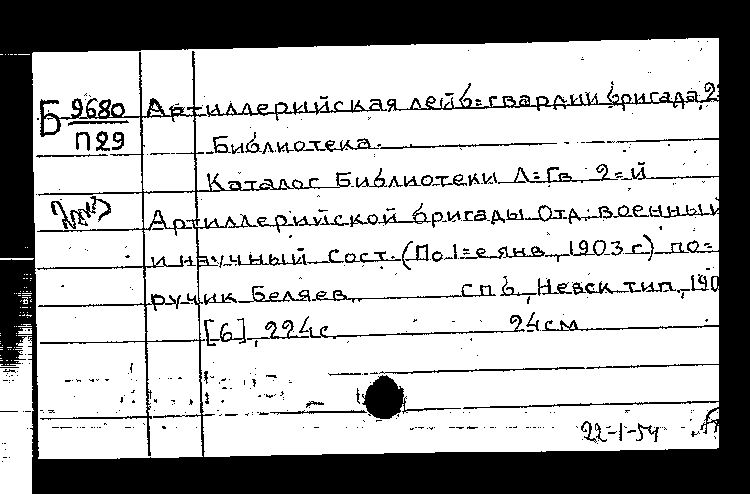 Б 9680 Артиллерийская лейб=гвардии бригада, 2
П29 Библиотека.
Каталог Библиотеки Л=Гв. 2=й
Артиллерийской бригады. Отд: военный
и научный. Сост. (По 1=е янв., 1903 г.) по=
ручик Беляев. спб, Невск. тип., 190
[6], 224с. 24см
22-1-54